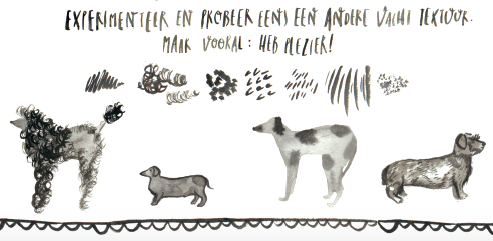 EXPERIMENTEER EN PROBEER EENS EEN ANDERE VACHT TEXTUUR.
MAAR VOORAL: HEB PLEZIER!